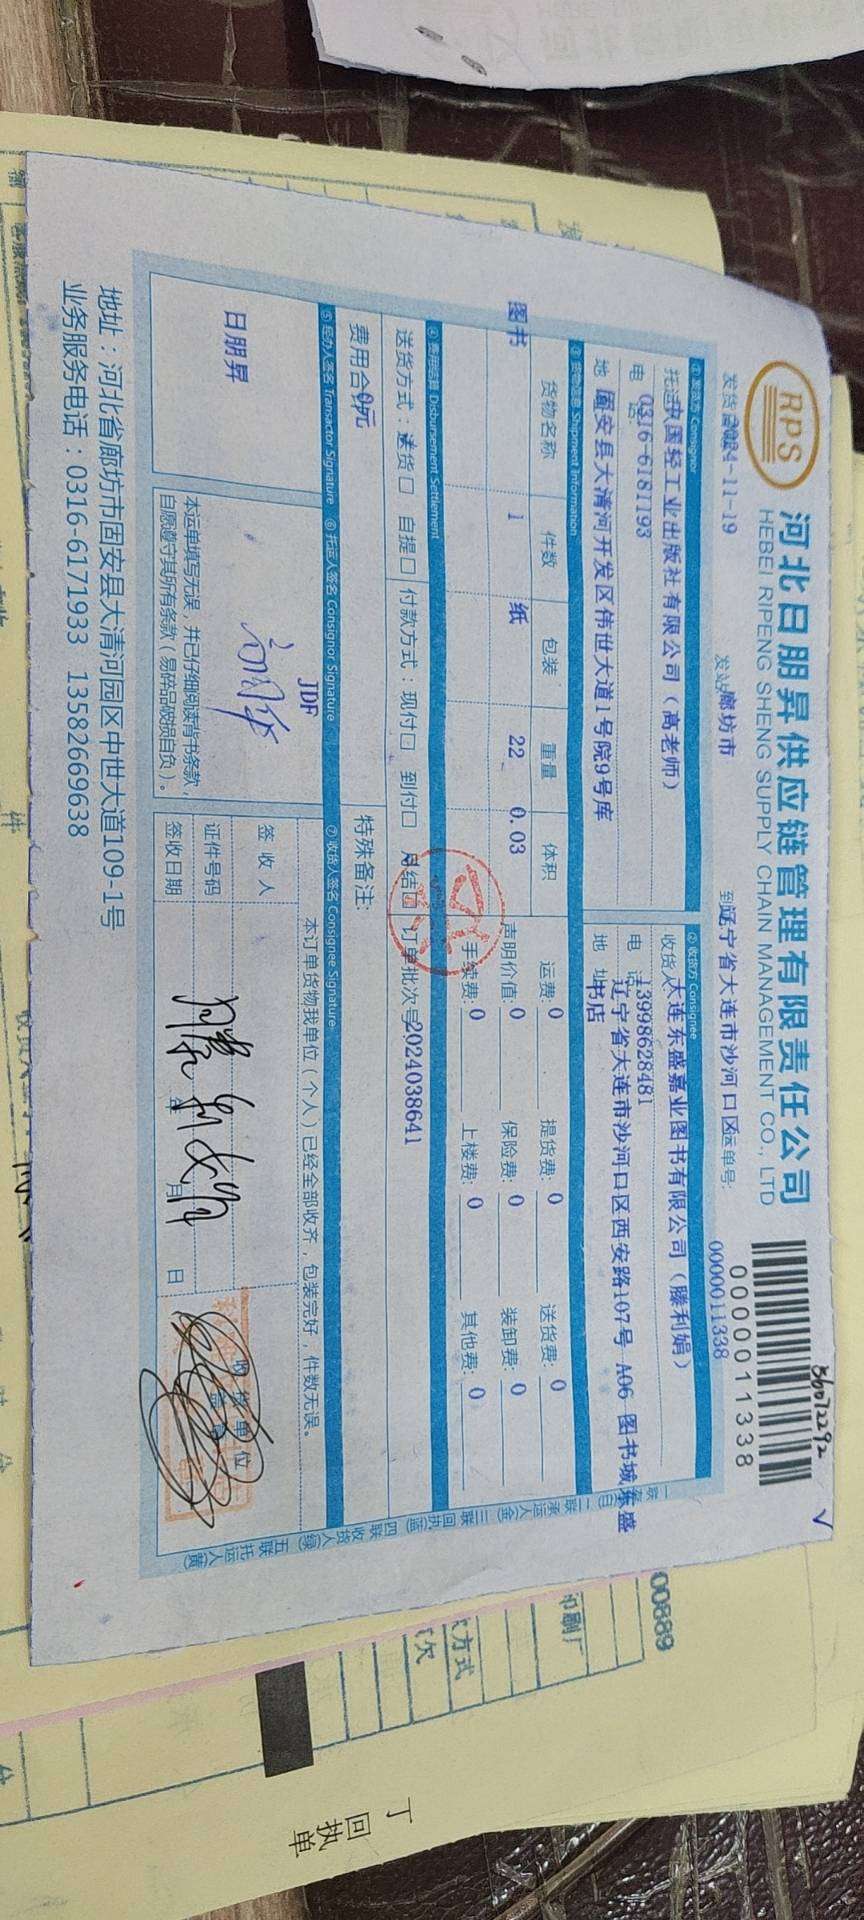 RPS
河北日朋昇供应链管理有限责任公司
HEBEI RIPENG SHENG SUPPLY CHAIN MANAGEMENT CO., LTD
36072292
0000011338
发货 2024-11-19
发站 廊坊市
到 辽宁省大连市沙河口区
运单号: 0000011338
① 发货方 Consignor
托运 中国轻工业出版社有限公司(高老师)
电 话 0316-6181193
地 固安县大清河开发区伟世大道1号院9号库
② 收货方 Consignee
收货人 大连东盛嘉业图书有限公司(滕利娟)
电 话 13998628481
地 址 辽宁省大连市沙河口区西安路107号 A06 图书城东盛
书店
③ 货物信息 Shipment Information
货物名称 件数 包装 重量 体积
图书 1 纸 22 0.03
运费: 0 提货费: 0 送货费: 0
声明价值: 0 保险费: 0 装卸费: 0
手续费: 0 上楼费: 0 其他费: 0
④ 费用结算 Disbursement Settlement
送货方式:送货□ 自提□ 付款方式:现付□ 到付□ 月结 订单批次号 2024038641
费用合 0元
特殊备注:
⑤ 经办人签名 Transactor Signature
日朋昇
⑥ 托运人签名 Consignor Signature
JDF
本运单填写无误,并已仔细阅读背书条款,
自愿遵守其所有条款(易碎品破损自负)。
⑦ 收货人签名 Consignee Signature
本订单货物我单位(个人)已经全部收齐,包装完好,件数无误。
签 收 人
证件号码
签收日期 年 月 日
收 货 单 位
盖 章
一联存根(白) 二联承运人(金) 三联回执(蓝) 四联收货人(绿) 五联托运人(黄)
地址:河北省廊坊市固安县大清河园区中世大道109-1号
业务服务电话:0316-6171933 13582669638
00889
印刷厂
方式
欠
丁 回执单